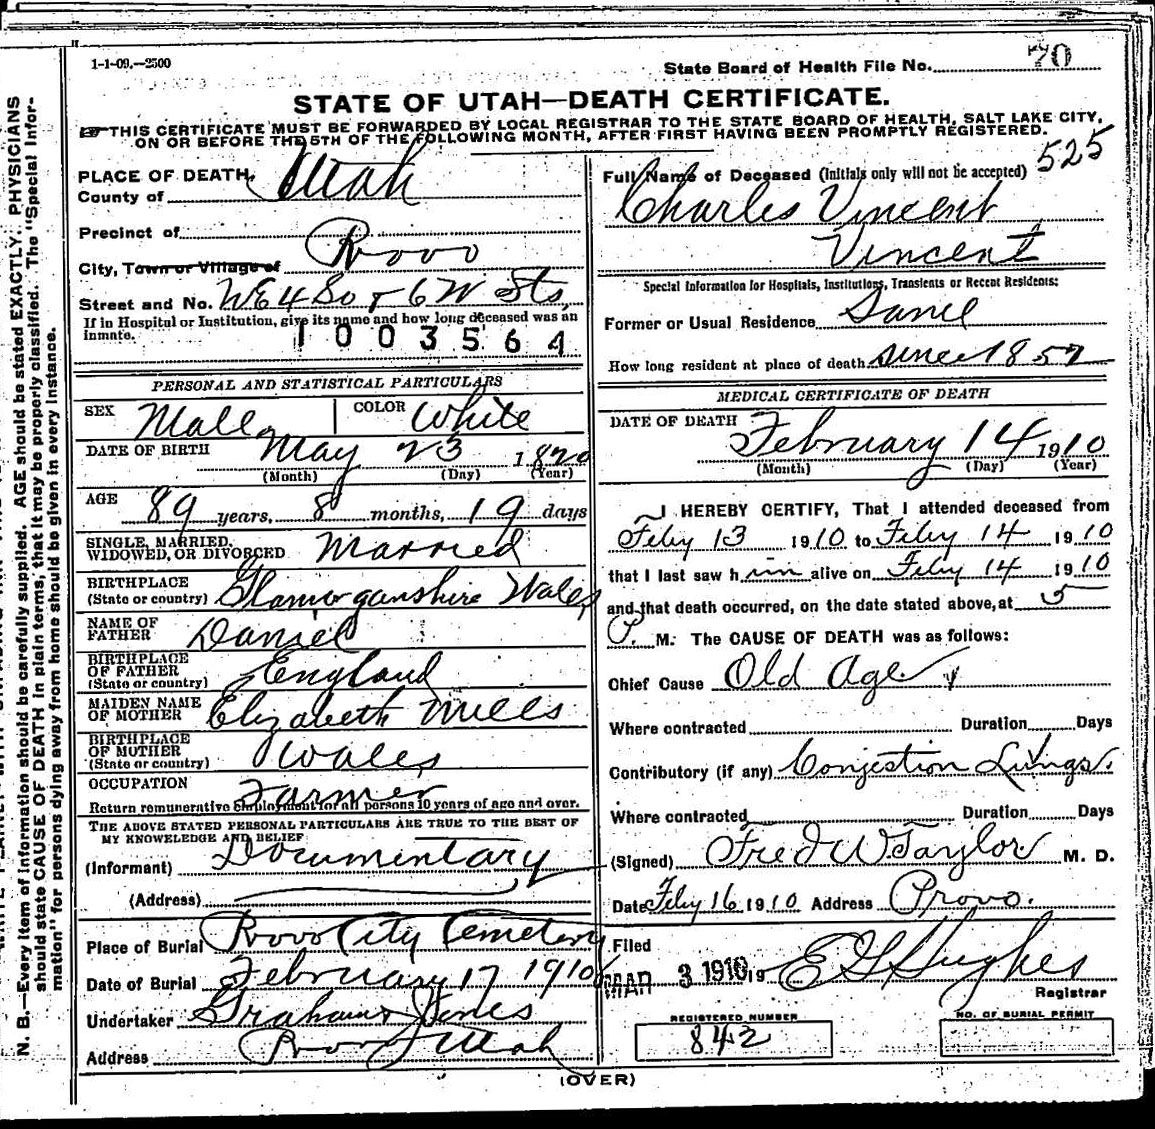 1-1-09.—2500
State Board of Health File No. 70
STATE OF UTAH—DEATH CERTIFICATE.
THIS CERTIFICATE MUST BE FORWARDED BY LOCAL REGISTRAR TO THE STATE BOARD OF HEALTH, SALT LAKE CITY,
ON OR BEFORE THE 5TH OF THE FOLLOWING MONTH, AFTER FIRST HAVING BEEN PROMPTLY REGISTERED.
525
PLACE OF DEATH,
County of Utah
Precinct of
City, Town or Village of Provo
Street and No. W E 4 So & 6 W Sts,
If in Hospital or Institution, give its name and how long deceased was an
inmate.
1003564
PERSONAL AND STATISTICAL PARTICULARS
SEX Male COLOR White
DATE OF BIRTH May 23 1820
(Month) (Day) (Year)
AGE 89 years, 8 months, 19 days
SINGLE, MARRIED,
WIDOWED, OR DIVORCED Married
BIRTHPLACE
(State or country) Glamorganshire Wales
NAME OF
FATHER Daniel
BIRTHPLACE
OF FATHER
(State or country) England
MAIDEN NAME
OF MOTHER Elizabeth Mills
BIRTHPLACE
OF MOTHER
(State or country) Wales
OCCUPATION Farmer
Return remunerative employment for all persons 10 years of age and over.
THE ABOVE STATED PERSONAL PARTICULARS ARE TRUE TO THE BEST OF
MY KNOWLEDGE AND BELIEF
(Informant) Documentary
(Address)
Place of Burial Provo City Cemetery
Date of Burial February 17 1910
Undertaker Graham & Jones
Address Provo Utah
Full Name of Deceased (Initials only will not be accepted)
Charles Vincent
Vincent
Special Information for Hospitals, Institutions, Transients or Recent Residents:
Former or Usual Residence Same
How long resident at place of death since 1857
MEDICAL CERTIFICATE OF DEATH
DATE OF DEATH February 14 1910
(Month) (Day) (Year)
I HEREBY CERTIFY, That I attended deceased from
Feby 13 1910 to Feby 14 1910
that I last saw him alive on Feby 14 1910
and that death occurred, on the date stated above, at 5
P. M. The CAUSE OF DEATH was as follows:
Chief Cause Old Age
Where contracted Duration Days
Contributory (if any) Conjestion Lungs.
Where contracted Duration Days
(Signed) Fred W Taylor M. D.
Date Feby 16 1910 Address Provo.
Filed
MAR 3 1910 19 E G Hughes
Registrar
REGISTERED NUMBER
842
NO. OF BURIAL PERMIT
(OVER)
N. B.—Every item of information should be carefully supplied. AGE should be stated EXACTLY. PHYSICIANS
should state CAUSE OF DEATH in plain terms, that it may be properly classified. The "Special Infor-
mation" for persons dying away from home should be given in every instance.